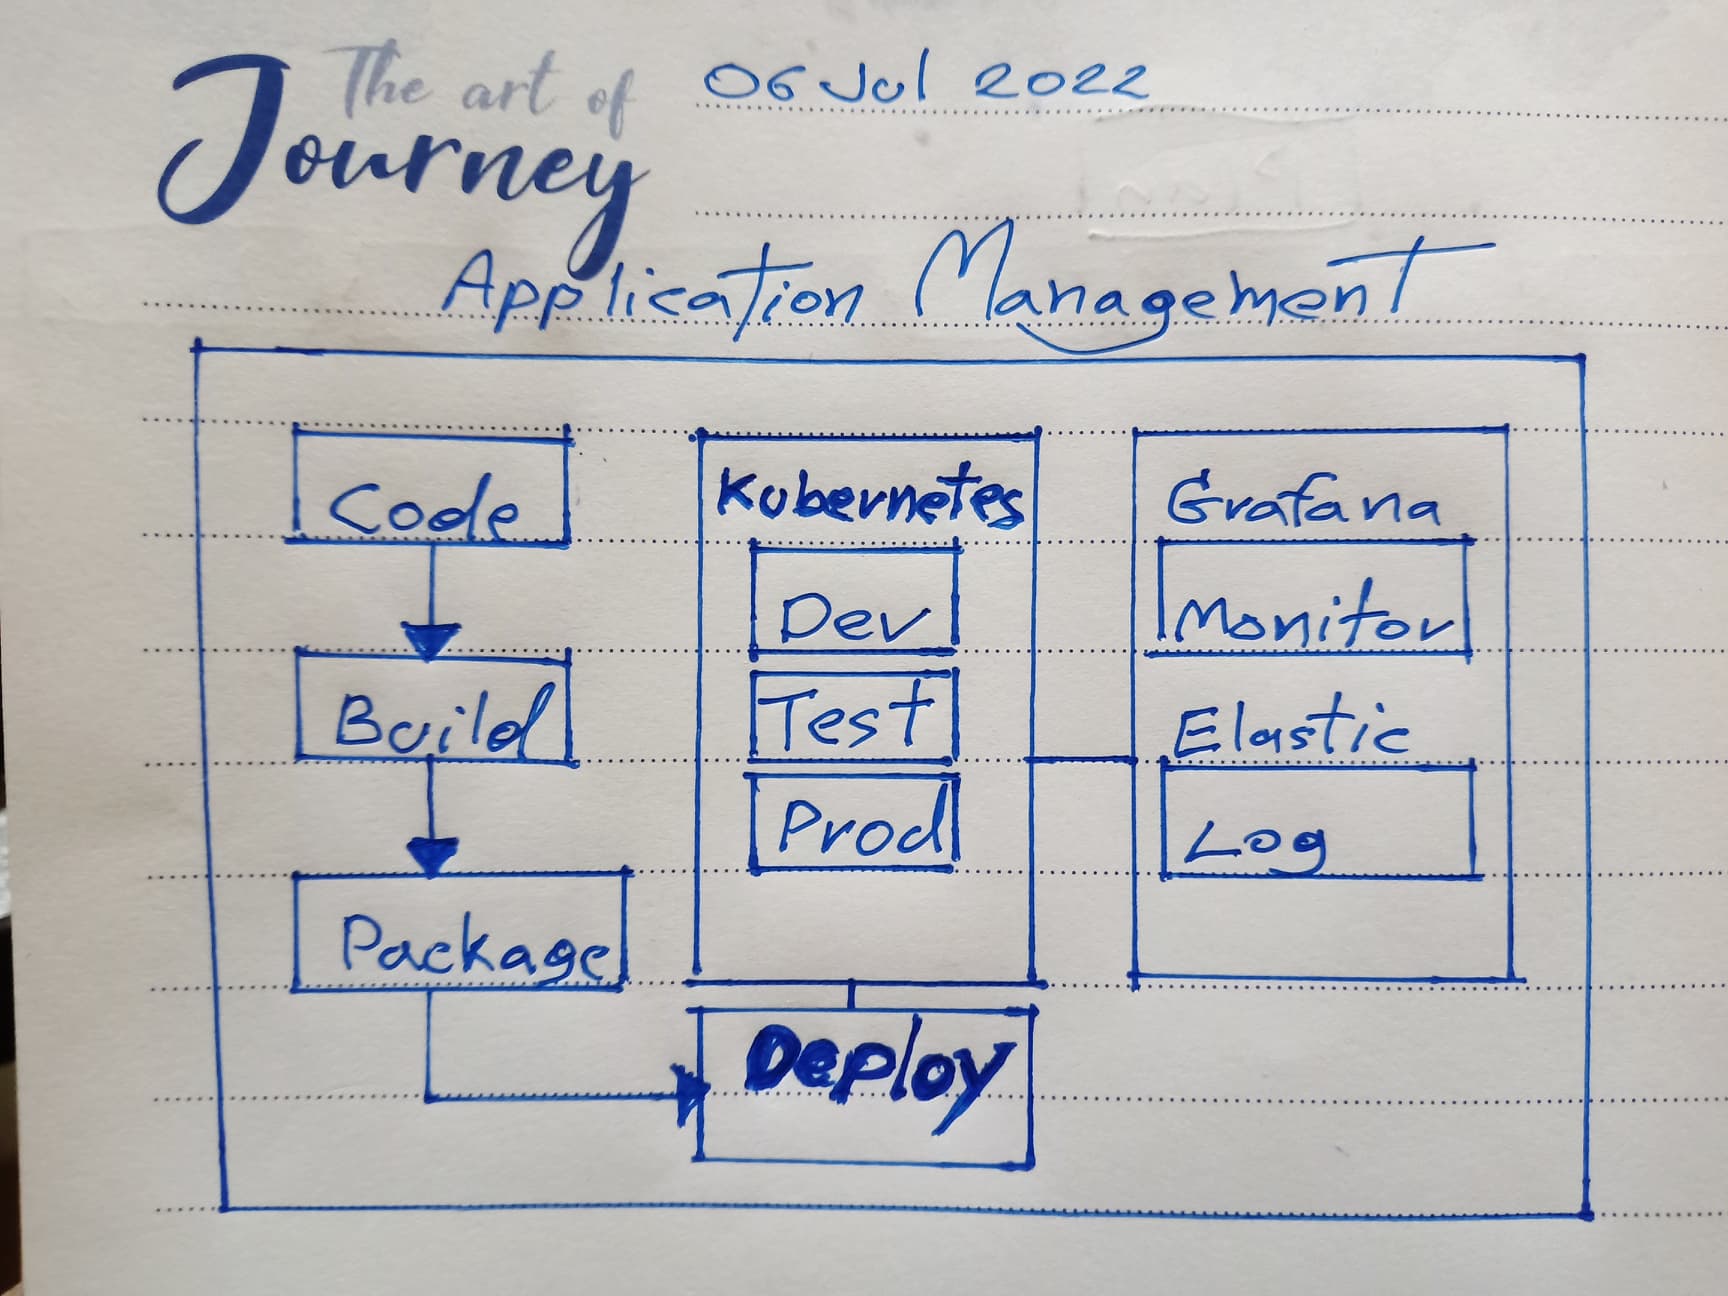 The art of
Journey
06 Jul 2022
Application Management
Code
Build
Package
Kubernetes
Dev
Test
Prod
Deploy
Grafana
Monitor
Elastic
Log